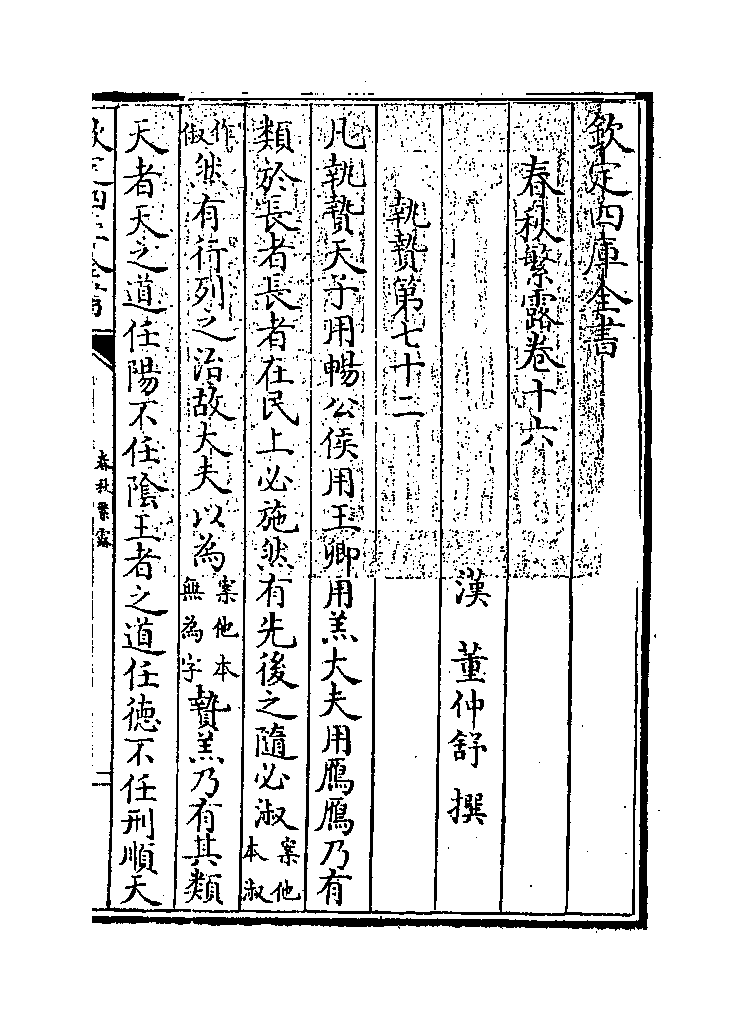 欽定四庫全書
春秋繁露卷十六
漢 董仲舒 撰
執贄第七十二
凡執贄天子用暢公侯用玉卿用羔大夫用鴈鴈乃有
類於長者長者在民上必施然有先後之隨必淑案他本淑
作俶然有行列之治故大夫以為案他本無為字贄羔乃有其類
天者天之道任陽不任隂王者之道任徳不任刑順天
欽定四庫全書
春秋繁露